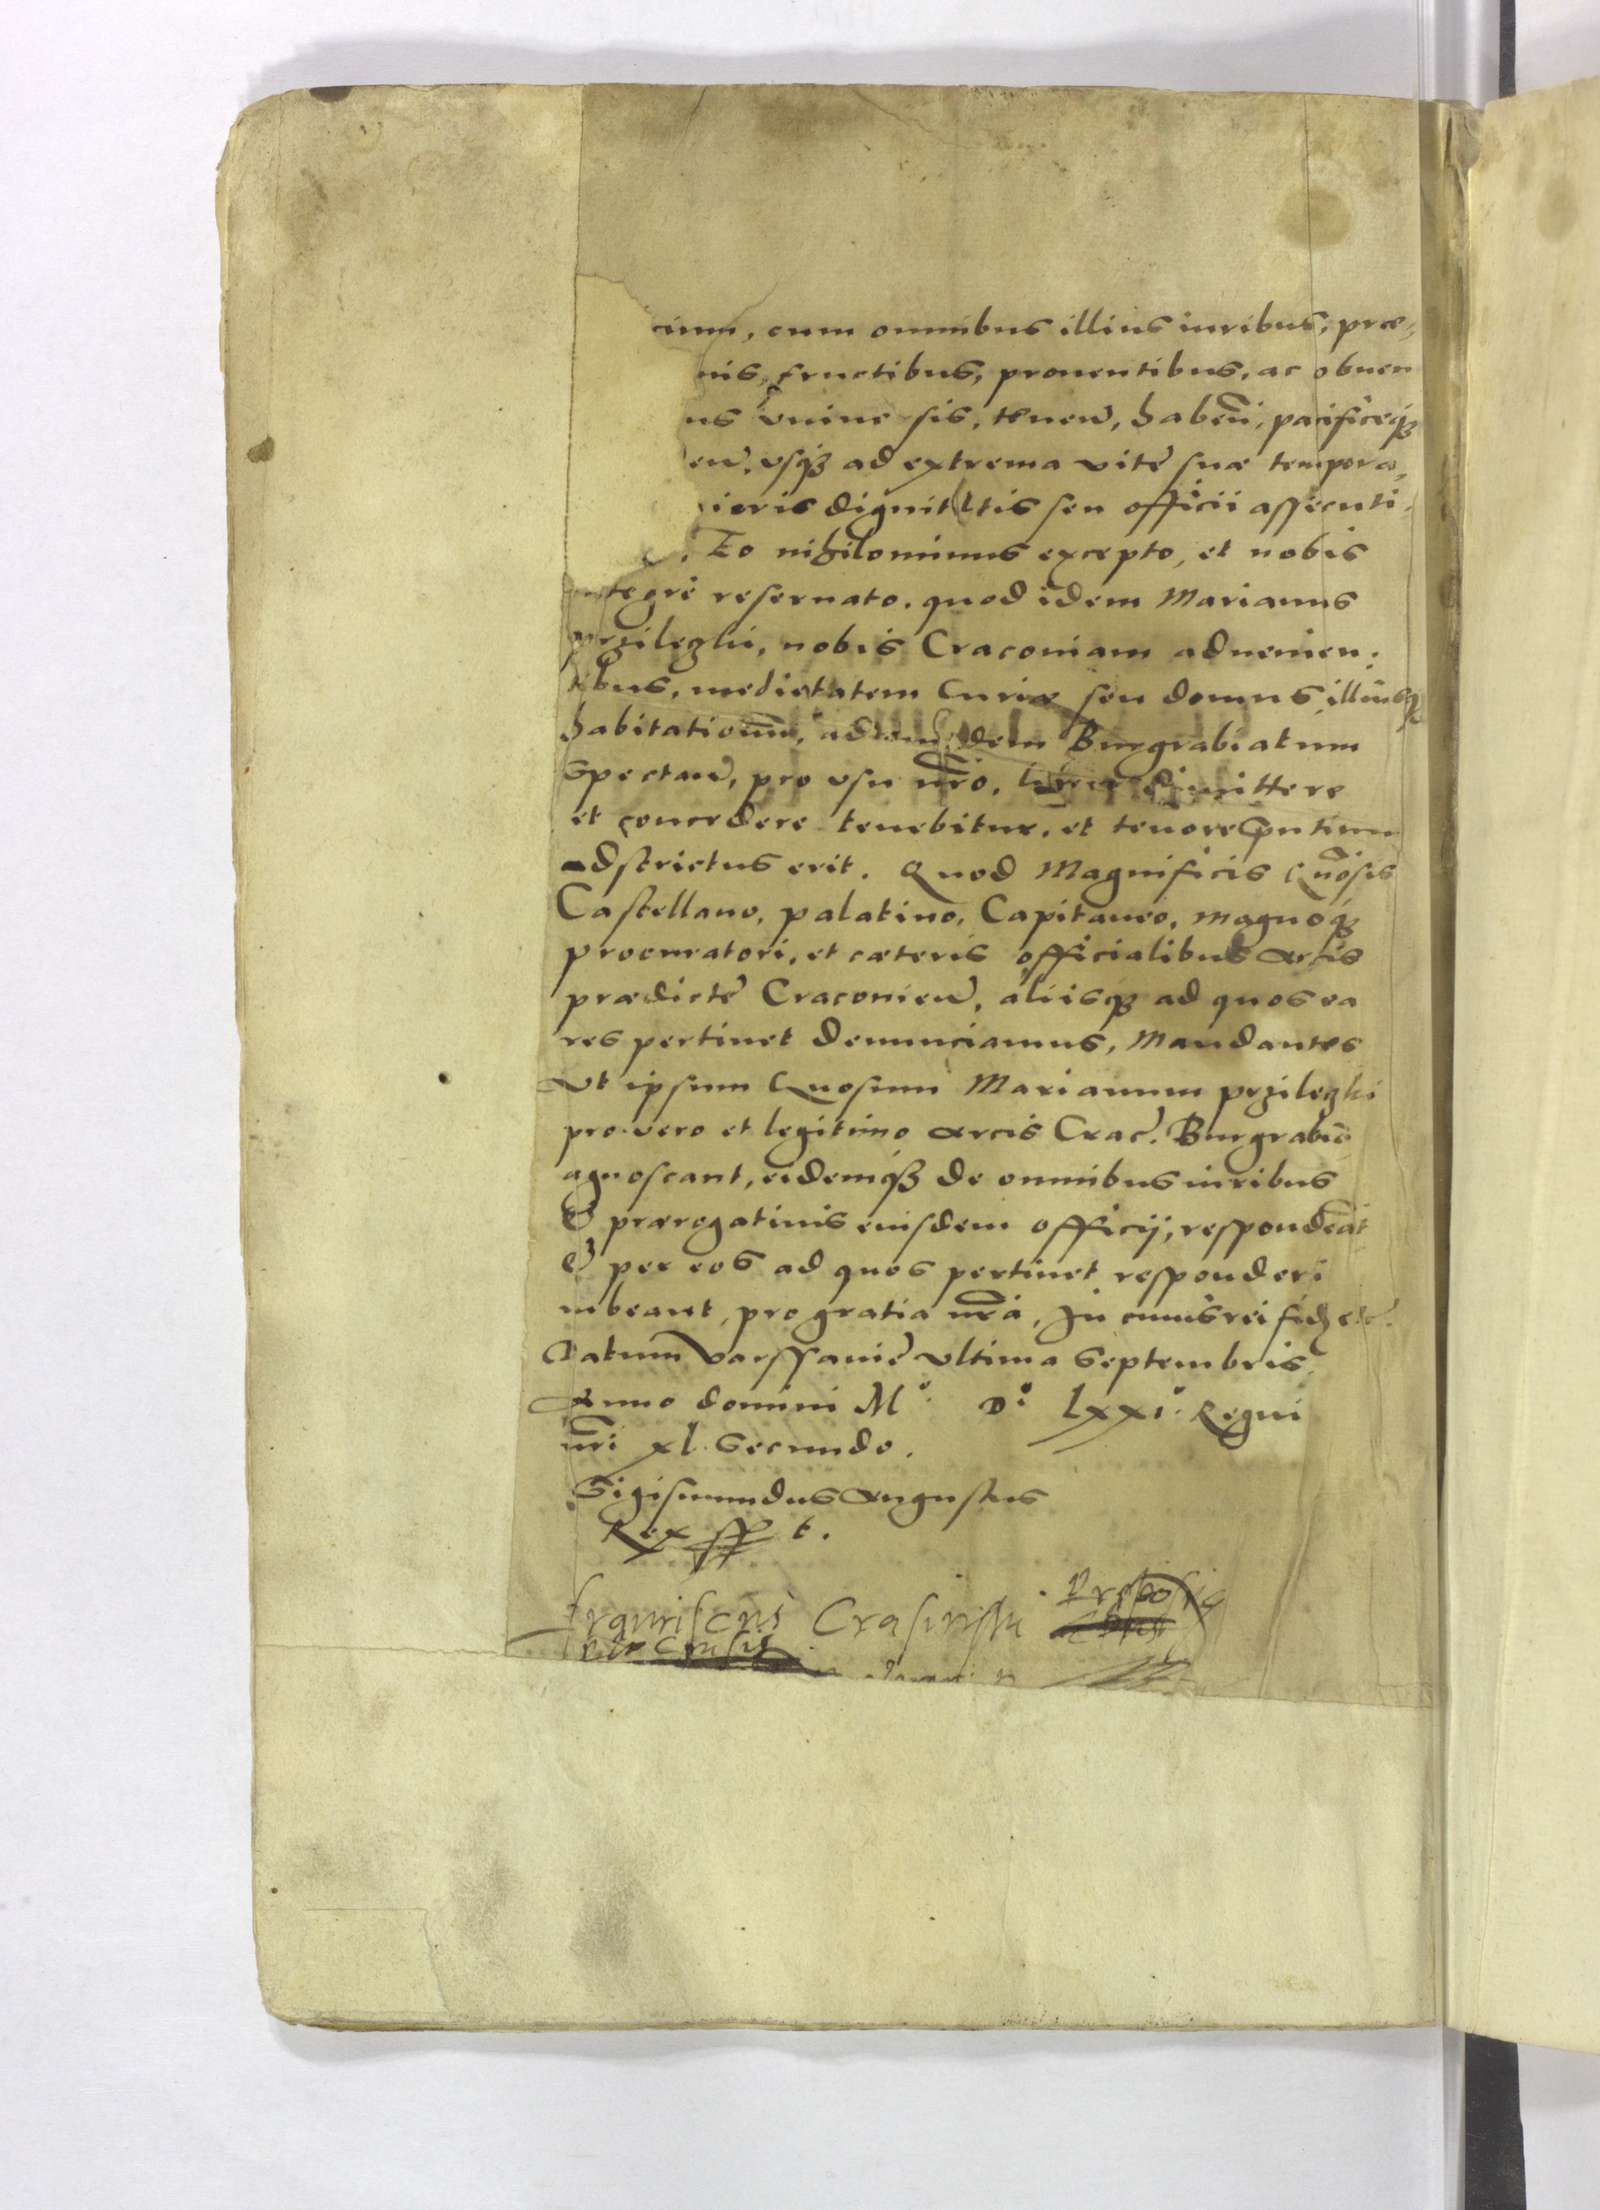 cium, cum omnibus illius iuribus, præ-
nis, fructibus, prouentibus, ac obuen
us vniuersis, teneñ, habeñ, pacificeqз
eñ, vsqз ad extrema vitę suæ tempora,
ioris dignitatis seu officii assecuti.
. Eo nihilominus excepto, et nobis
integre reseruato, quod idem Marianus
przileczki, nobis Cracouiam aduenien.
tibus, medietatem Curiæ seu domus illiusqз
habitationũ, ad eundem Burgrabiatum
Spectañ, pro vsu nr̃o, dimittere
et concedere tenebitur, et tenore pñtium
adstrictus erit. Quod Magnificis Gñosis
Castellano, palatino, Capitaneo, magnoqз
procuratori, et cæteris officialibus Arcis
prædictę Cracouieñ, aliisqз ad quos ea
res pertinet denunciamus, Mandantes
Vt ipsum Gnosum Marianum przileczki
pro vero et legitimo Arcis Crac̃. Burgrabio
agnoscant, eidemqз de omnibus iuribus
& prærogatiuis eiusdem officij, respondeãt
& per eos ad quos pertinet responderi
iubeant, pro gratia nr̃a, In cuius rei fidẽ etc̃.
Datum Varssauię vltima Septembris
Anno domini M° D° lxxi° Regni
nr̃i xl. Secundo.
Sigismundus Augustus
Rex sspt.
Franciscus Crasinski